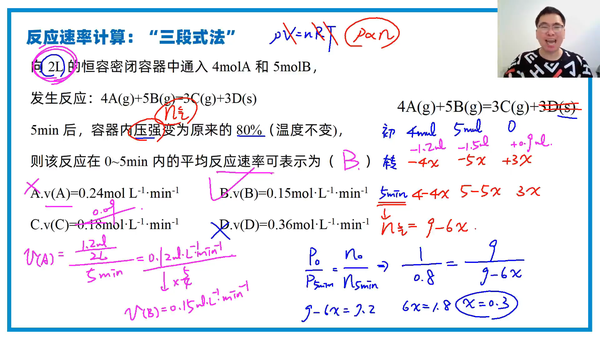 反应速率计算：“三段式法”
pV=nRT p∝n
向 2L 的恒容密闭容器中通入 4molA 和 5molB，
发生反应：4A(g)+5B(g)=3C(g)+3D(s)
n气
5min 后，容器内压强变为原来的 80%（温度不变），
则该反应在 0~5min 内的平均反应速率可表示为（ B ）
A.v(A)=0.24mol L⁻¹·min⁻¹ B.v(B)=0.15mol·L⁻¹·min⁻¹
0.09
C.v(C)=0.18mol L⁻¹·min⁻¹ D.v(D)=0.36mol L⁻¹·min⁻¹
V(A)= 1.2mol/2L / 5min = 0.12mol·L⁻¹·min⁻¹
↓×5/4
V(B)=0.15mol·L⁻¹·min⁻¹
4A(g)+5B(g)=3C(g)+3D(s)
初 4mol 5mol 0
-1.2mol -1.5mol +0.9mol
转 -4x -5x +3x
5min 4-4x 5-5x 3x
↓
n气=9-6x
P₀/P5min = n₀/n5min ⇒ 1/0.8 = 9/9-6x
9-6x=7.2 6x=1.8 x=0.3